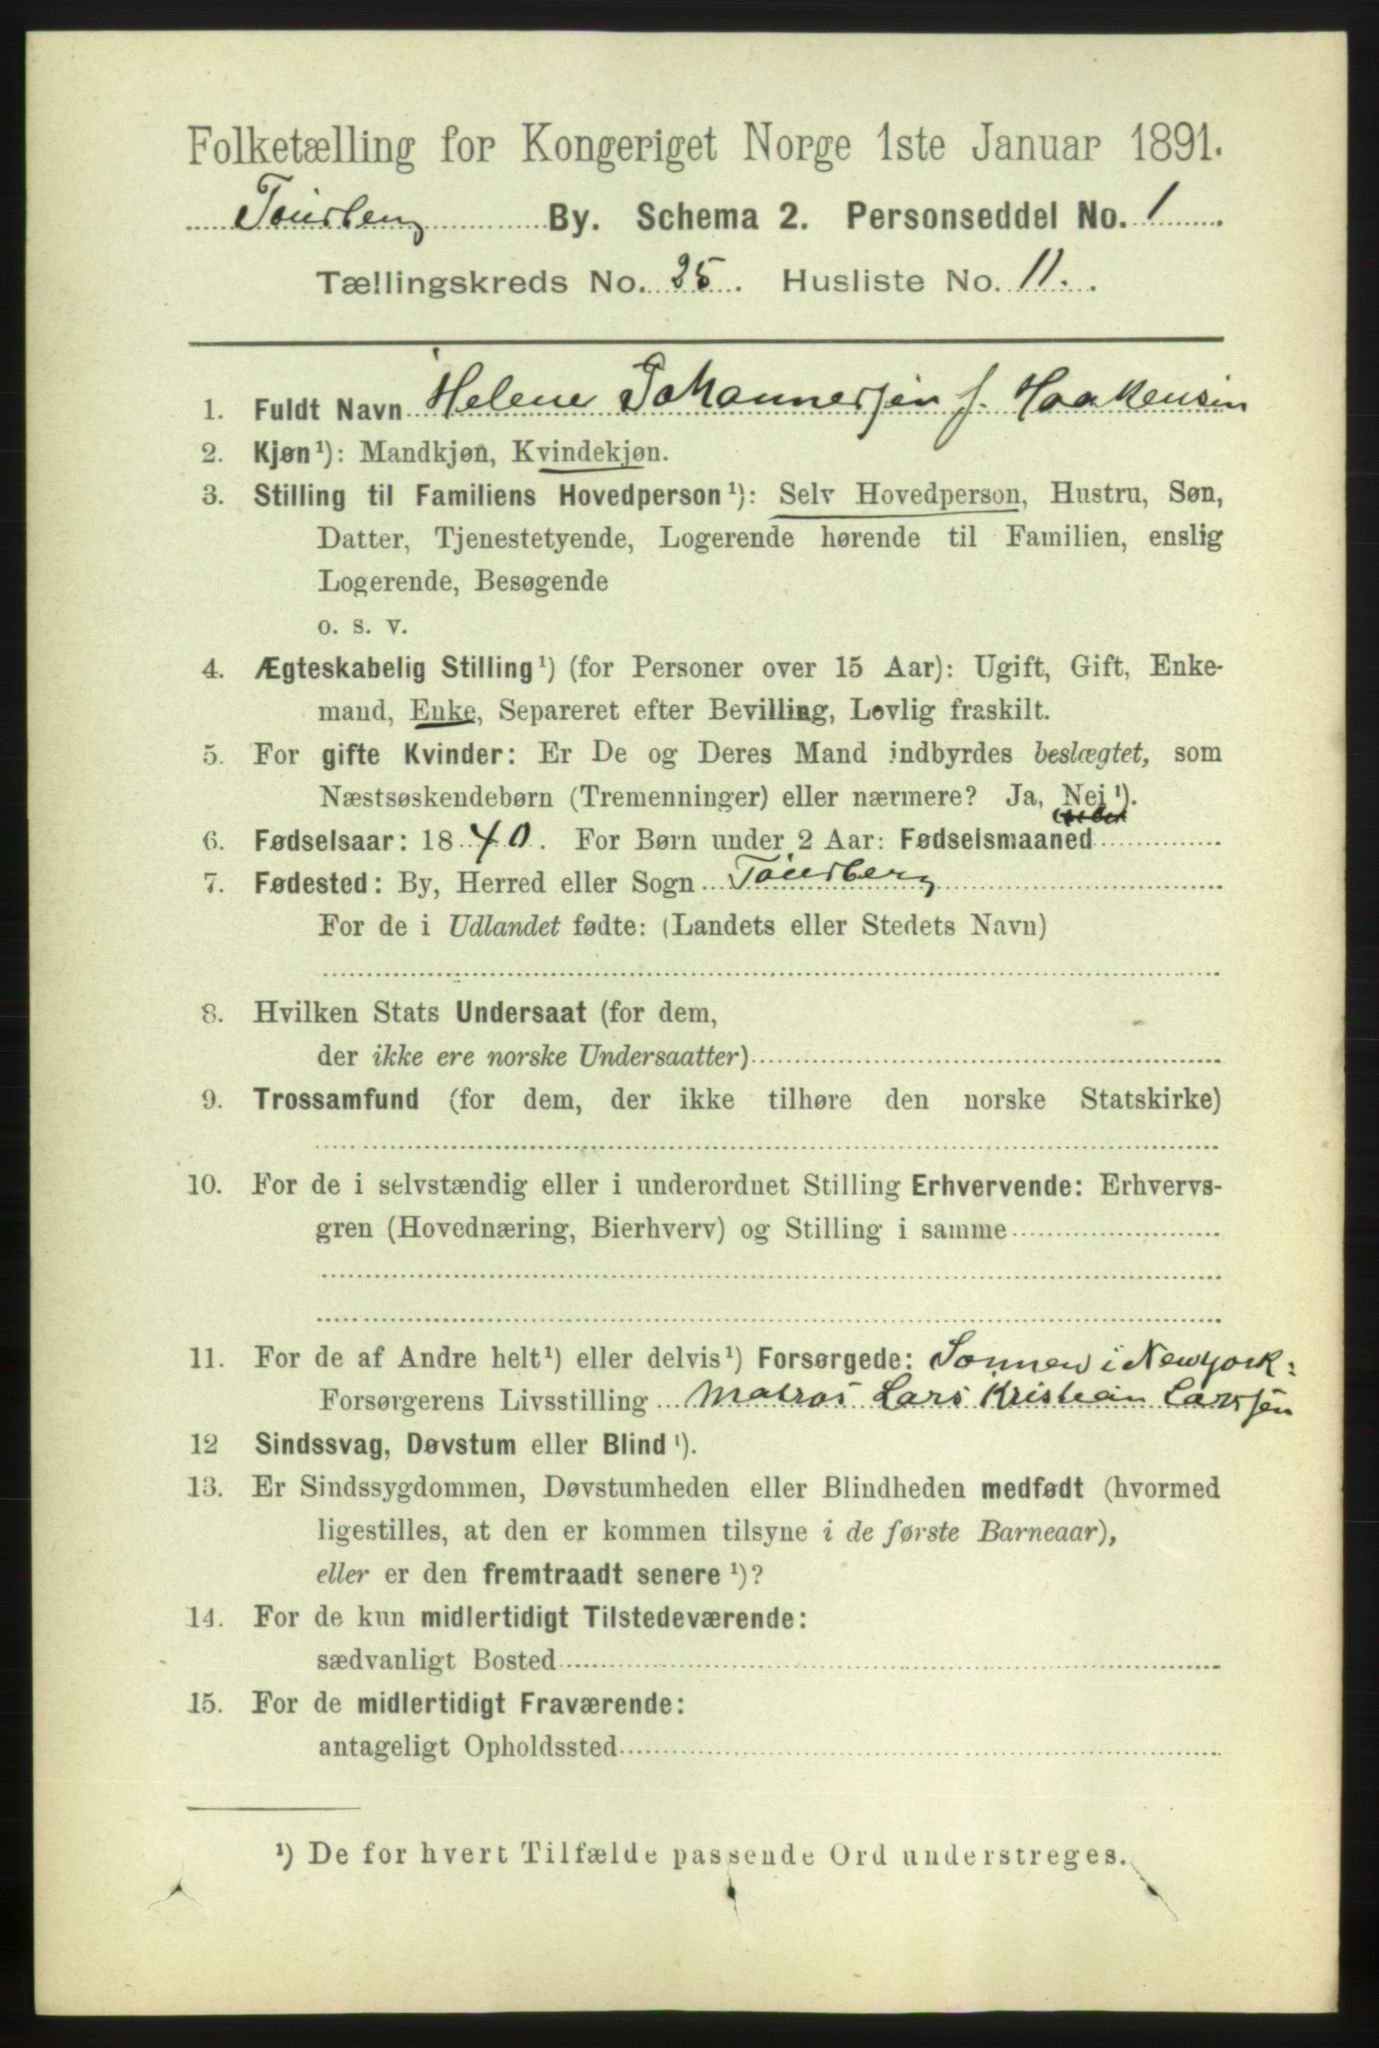 Folketælling for Kongeriget Norge 1ste Januar 1891.
Tønsberg By. Schema 2. Personseddel No. 1
Tællingskreds No. 25. Husliste No. 11.
1. Fuldt Navn Helene Johannessen f. Haakensen
2. Kjøn ¹): Mandkjøn, Kvindekjøn.
3. Stilling til Familiens Hovedperson ¹): Selv Hovedperson, Hustru, Søn,
Datter, Tjenestetyende, Logerende hørende til Familien, enslig
Logerende, Besøgende
o. s. v.
4. Ægteskabelig Stilling ¹) (for Personer over 15 Aar): Ugift, Gift, Enke-
mand, Enke, Separeret efter Bevilling, Lovlig fraskilt.
5. For gifte Kvinder: Er De og Deres Mand indbyrdes beslægtet, som
Næstsøskendebørn (Tremenninger) eller nærmere? Ja, Nej ¹).
6. Fødselsaar: 1840. For Børn under 2 Aar: Fødselsmaaned
7. Fødested: By, Herred eller Sogn Tønsberg
For de i Udlandet fødte: (Landets eller Stedets Navn)
8. Hvilken Stats Undersaat (for dem,
der ikke ere norske Undersaatter)
9. Trossamfund (for dem, der ikke tilhøre den norske Statskirke)
10. For de i selvstændig eller i underordnet Stilling Erhvervende: Erhvervs-
gren (Hovednæring, Bierhverv) og Stilling i samme
11. For de af Andre helt ¹) eller delvis ¹) Forsørgede: Sønnen i Newyork:
Forsørgerens Livsstilling Matros Lars Kristian Larssen
12 Sindssvag, Døvstum eller Blind ¹).
13. Er Sindssygdommen, Døvstumheden eller Blindheden medfødt (hvormed
ligestilles, at den er kommen tilsyne i de første Barneaar),
eller er den fremtraadt senere ¹)?
14. For de kun midlertidigt Tilstedeværende:
sædvanligt Bosted
15. For de midlertidigt Fraværende:
antageligt Opholdssted
¹) De for hvert Tilfælde passende Ord understreges.